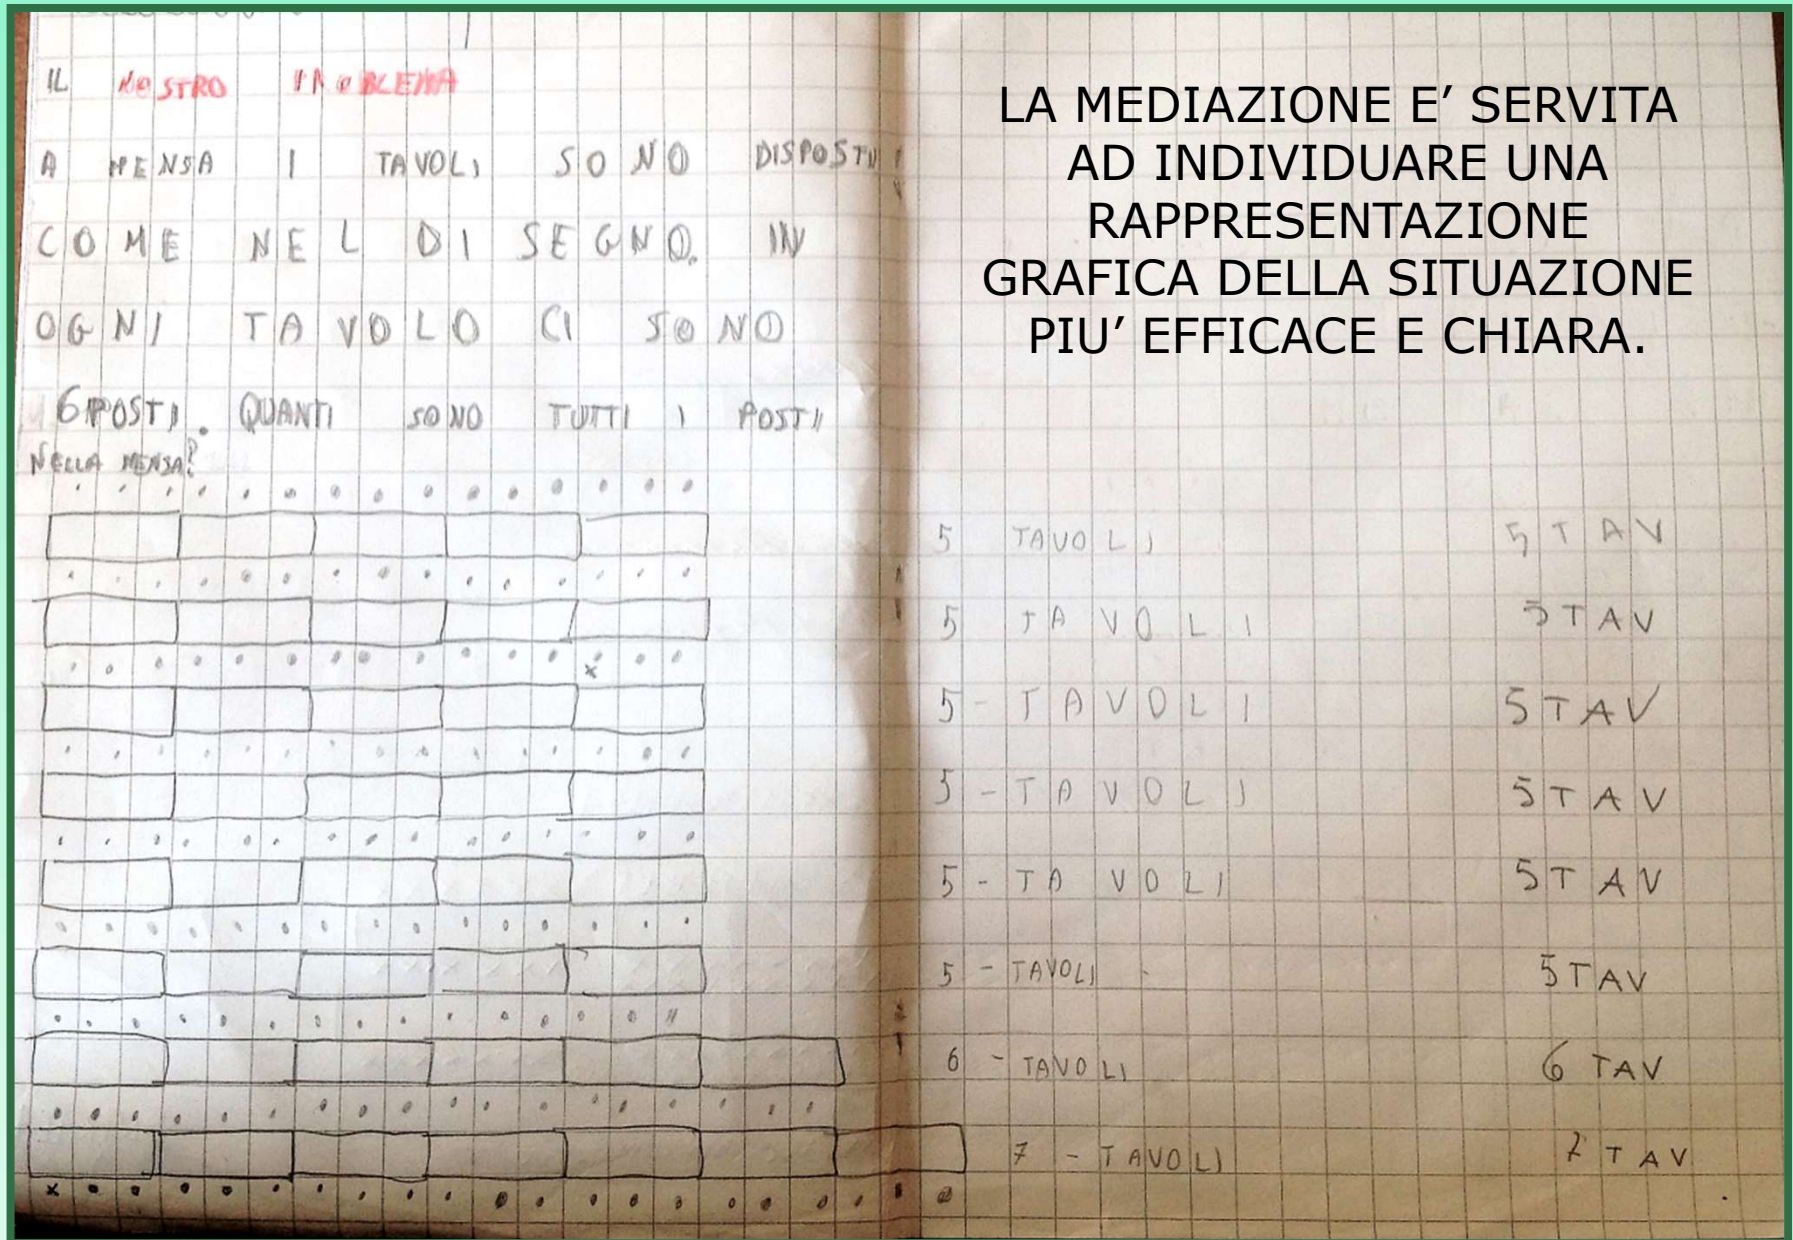 IL NOSTRO PROBLEMA
A MENSA I TAVOLI SONO DISPOSTI
COME NEL DISEGNO. IN
OGNI TAVOLO CI SONO
6 POSTI. QUANTI SONO TUTTI I POSTI
NELLA MENSA?
LA MEDIAZIONE E’ SERVITA
AD INDIVIDUARE UNA
RAPPRESENTAZIONE
GRAFICA DELLA SITUAZIONE
PIU’ EFFICACE E CHIARA.
5 TAVOLI 5 TAV
5 TAVOLI 5 TAV
5 - TAVOLI 5 TAV
5 - TAVOLI 5 TAV
5 - TAVOLI 5 TAV
5 - TAVOLI - 5 TAV
6 - TAVOLI 6 TAV
7 - TAVOLI 7 TAV